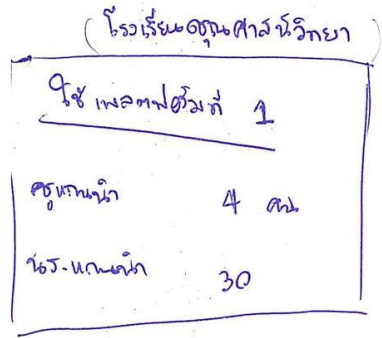 (โรงเรียนอรุณศาสน์วิทยา)
ใช้ แพลตฟอร์มที่ 1
ครูแกนนำ 4 คน
นร.แกนนำ 30